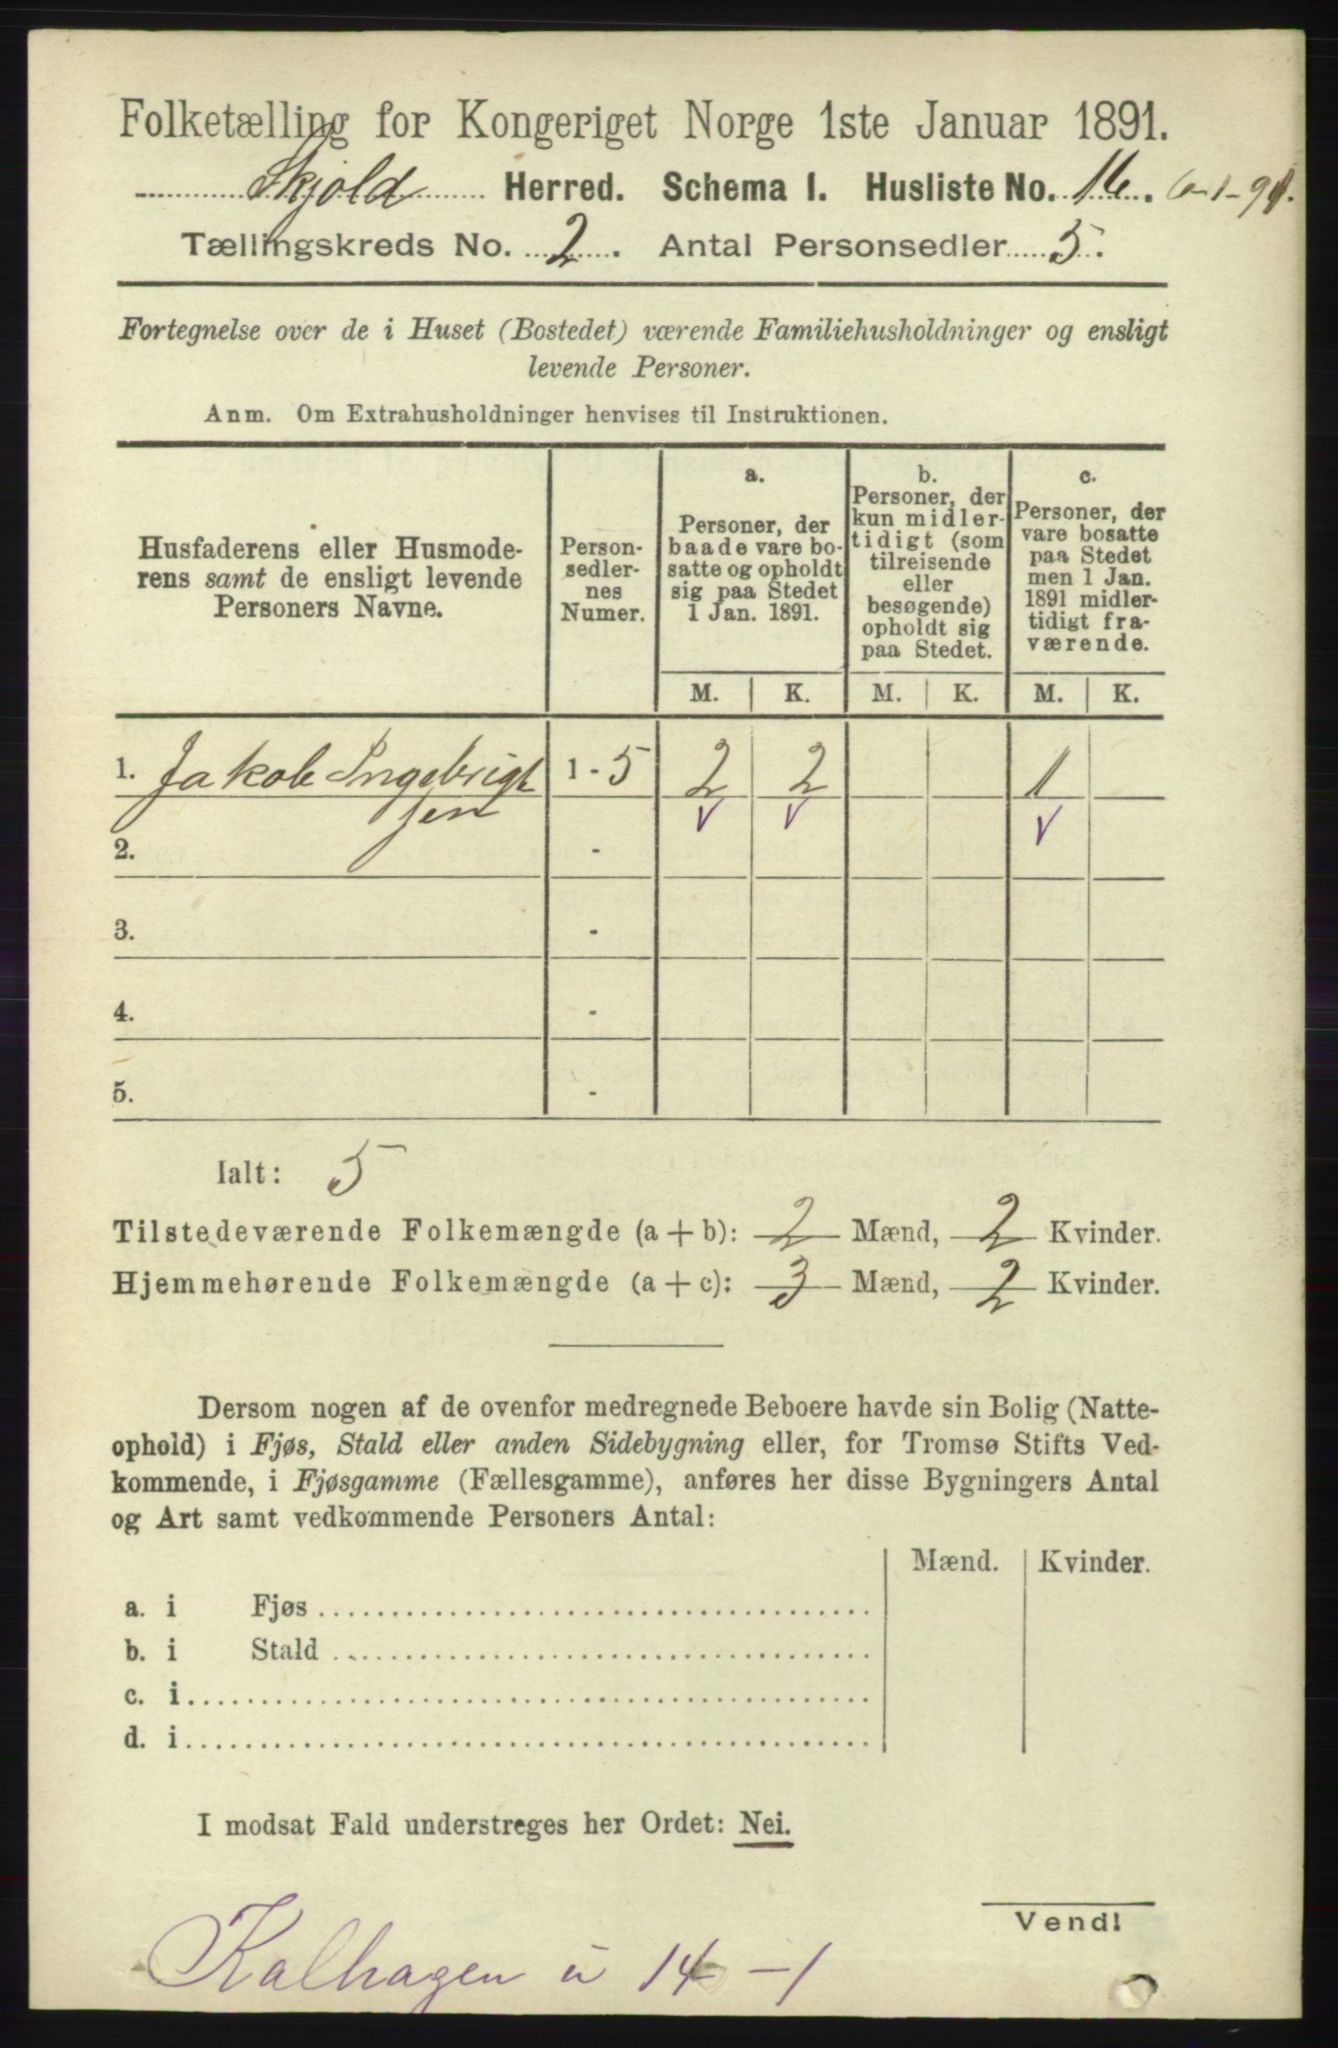 Folketælling for Kongeriget Norge 1ste Januar 1891.
Skjold Herred. Schema 1. Husliste No. 16. 6-1-91.
Tællingskreds No. 2. Antal Personsedler 5.
Fortegnelse over de i Huset (Bostedet) værende Familiehusholdninger og ensligt
levende Personer.
Anm. Om Extrahusholdninger henvises til Instruktionen.
Husfaderens eller Husmode-
rens samt de ensligt levende
Personers Navne.
Person-
sedler-
nes
Numer.
a.
Personer, der
baade vare bo-
satte og opholdt
sig paa Stedet
1 Jan. 1891.
b.
Personer, der
kun midler-
tidigt (som
tilreisende
eller
besøgende)
opholdt sig
paa Stedet.
c.
Personer, der
vare bosatte
paa Stedet
men 1 Jan.
1891 midler-
tidigt fra-
værende.
M. K. M. K. M. K.
1. Jakob Ingebrigt 1 - 5 2 2 1
sen v v v
2. -
3. -
4. -
5. -
Ialt: 5
Tilstedeværende Folkemængde (a + b): 2 Mænd, 2 Kvinder.
Hjemmehørende Folkemængde (a + c): 3 Mænd, 2 Kvinder.
Dersom nogen af de ovenfor medregnede Beboere havde sin Bolig (Natte-
ophold) i Fjøs, Stald eller anden Sidebygning eller, for Tromsø Stifts Ved-
kommende, i Fjøsgamme (Fællesgamme), anføres her disse Bygningers Antal
og Art samt vedkommende Personers Antal:
Mænd. Kvinder.
a. i Fjøs
b. i Stald
c. i
d. i
I modsat Fald understreges her Ordet: Nei.
Vend!
Kalhagen u 14 - 1